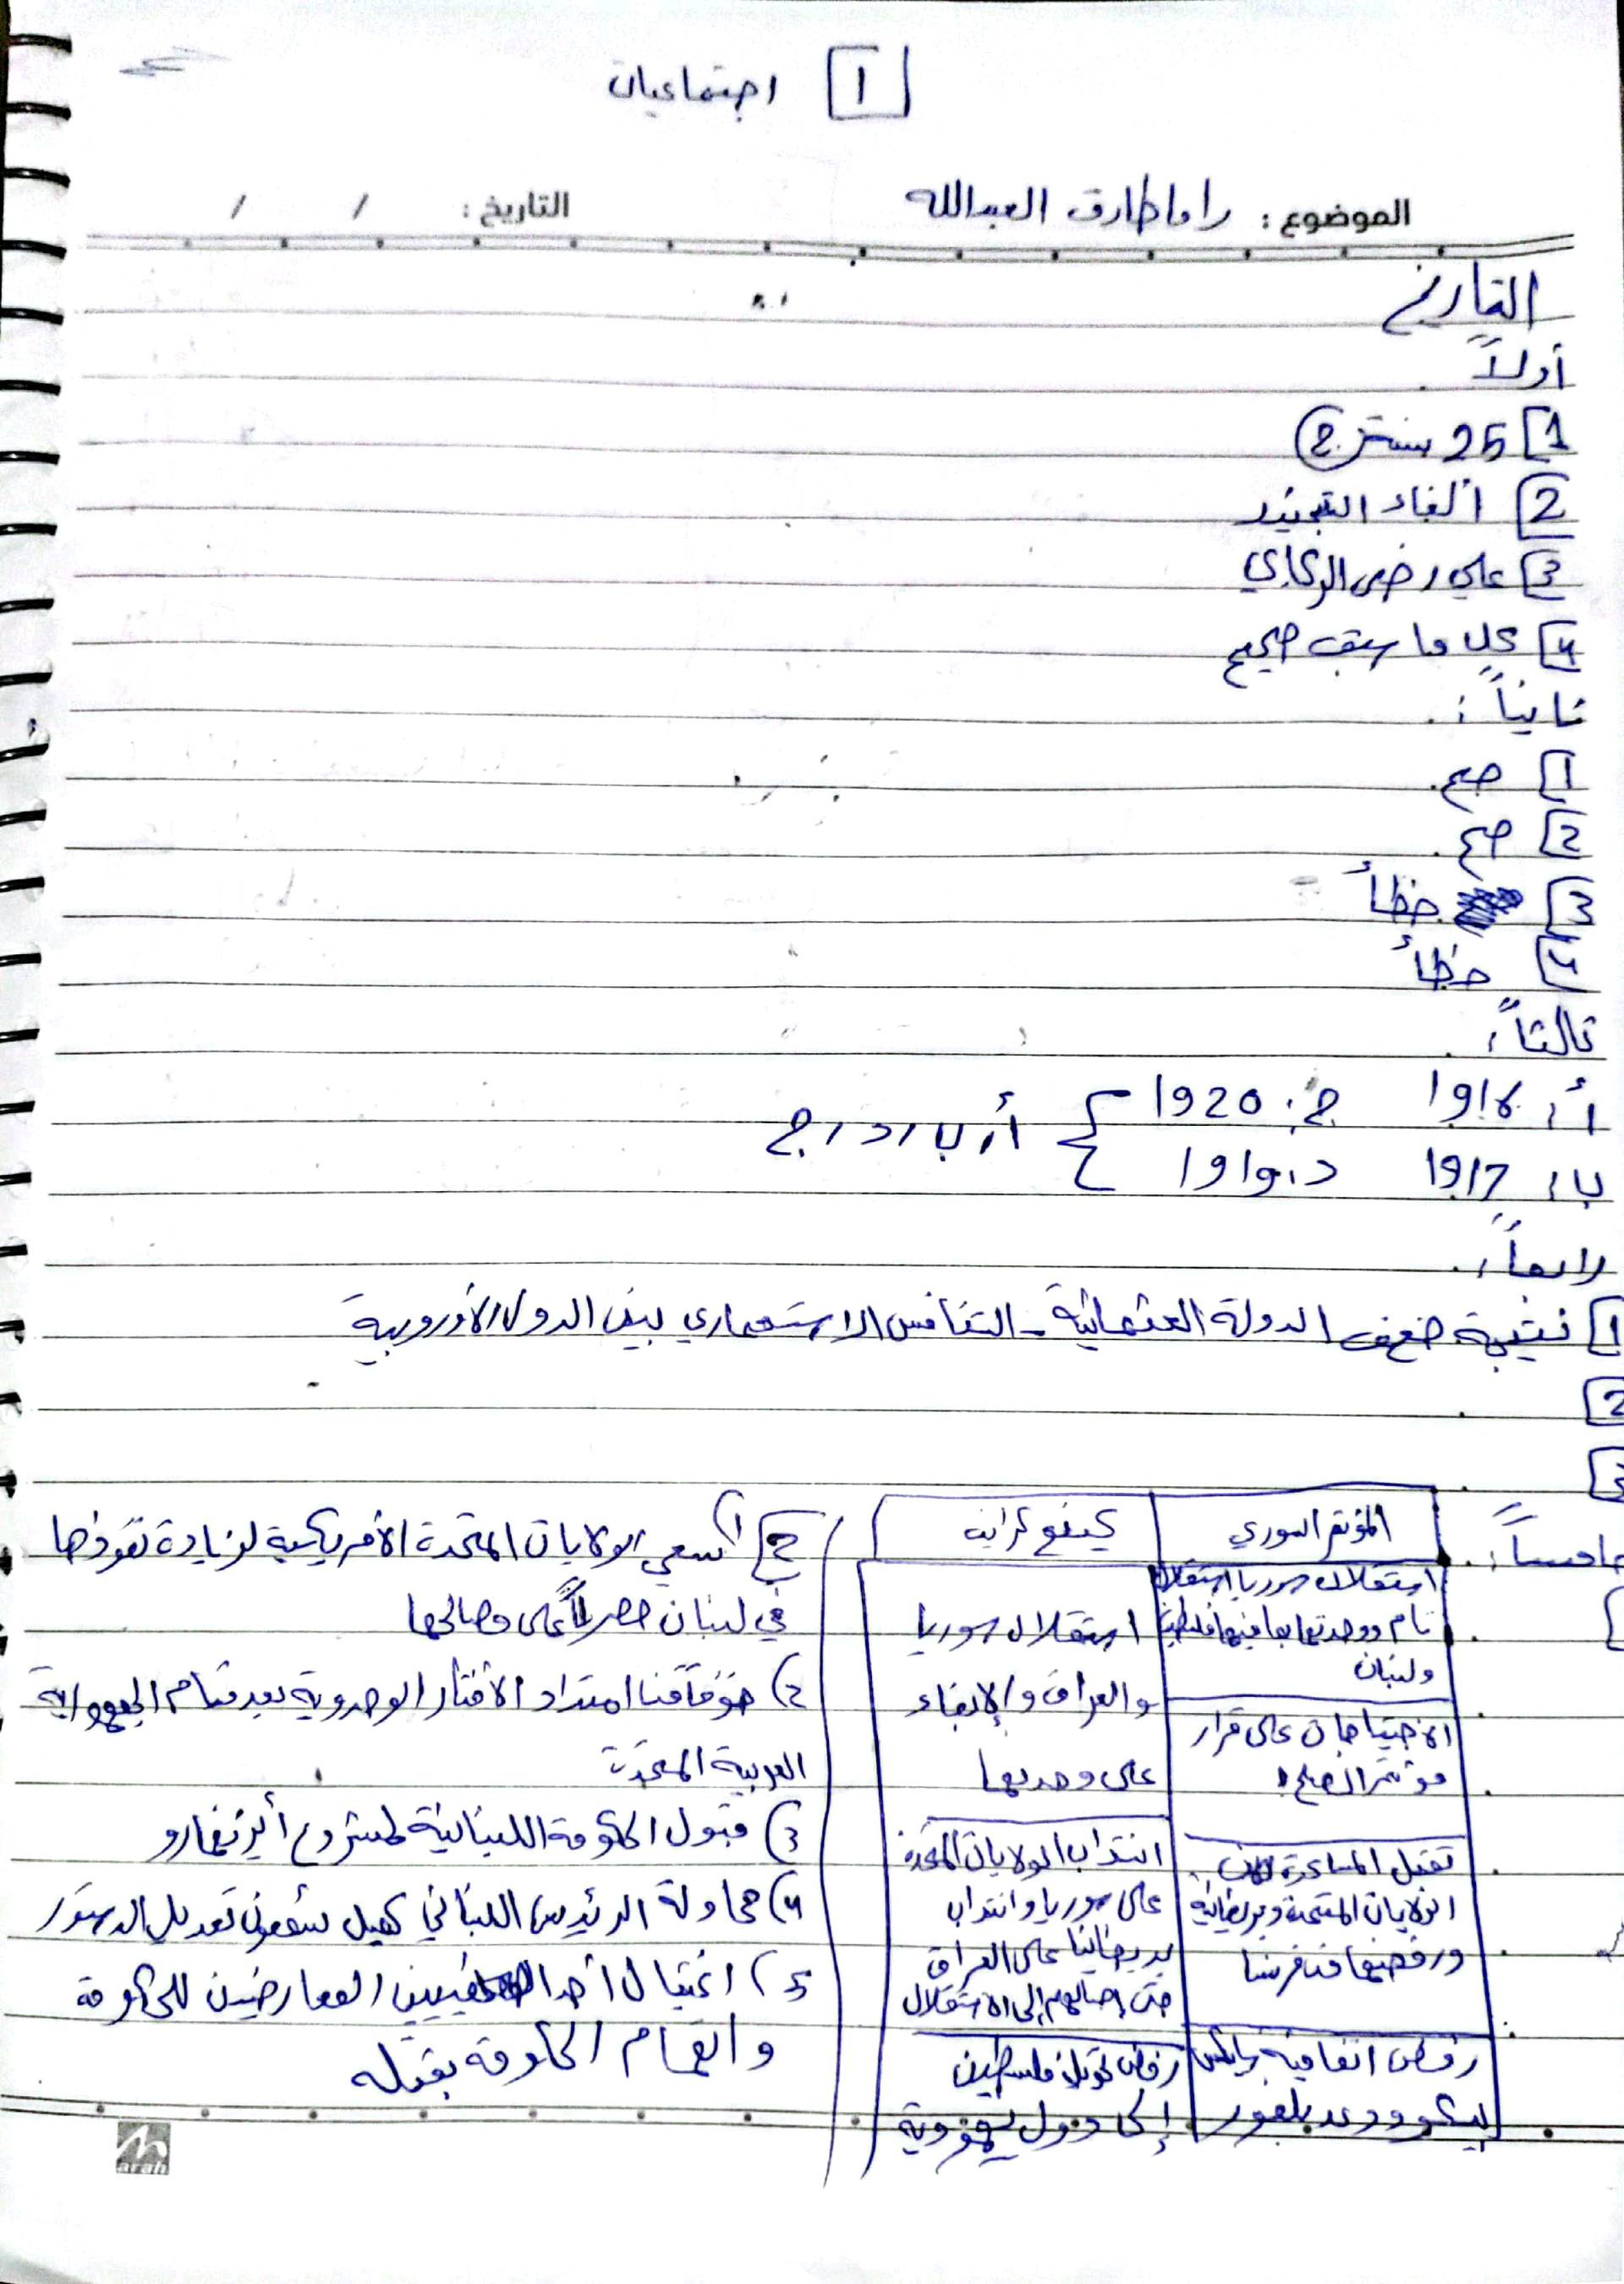 1 اجتماعيات
الموضوع : راما طارق العبدالله
التاريخ : / /
التاريخ
أولاً
1 25 سنتر 2
2 الغاء التجنيد
3 علي رضى الركابي
4 كل ما سبق صحيح
ثانياً :
1 صح
2 صح
3 خطأ
4 خطأ
ثالثاً :
أ : 1916 ج : 1920
ب : 1917 د : 1919
أ , ب , د , ج
رابعاً :
1 نتيجة ضعف الدولة العثمانية - التنافس الاستعماري بين الدول الأوروبية
2
3
خامساً :
المؤتمر السوري
كينغ كراين
استقلال سوريا استقلال
تام ووحدتها بما فيها فلسطين
ولبنان
استقلال سوريا
والعراق والإبقاء
على وحدتها
الاحتجاجات على قرار
مؤتمر الصلح
تقبل المساعدة من
الولايات المتحدة وبريطانية
ورفضها من فرنسا
انتداب الولايات المتحدة
على سوريا وانتداب
بريطانيا على العراق
حتى إيصالهم إلى الاستقلال
رفض اتفاقية سايكس
بيكو ووعد بلفور
رفض تحويل فلسطين
إلى دول يهودية
2 1) سعي الولايات المتحدة الأمريكية لزيادة نفوذها
في لبنان حصراً على مصالحها
2) خوفاً من امتداد الأفكار الوحدوية بعد قيام الجمهورية
العربية المتحدة
3) قبول الحكومة اللبنانية لمشروع أيزنهاور
4) محاولة الرئيس اللبناني كميل شمعون تعديل الدستور
5) اغتيال أحد الصحفيين المعارضين للحكومة
واتهام الحكومة بقتله
arah